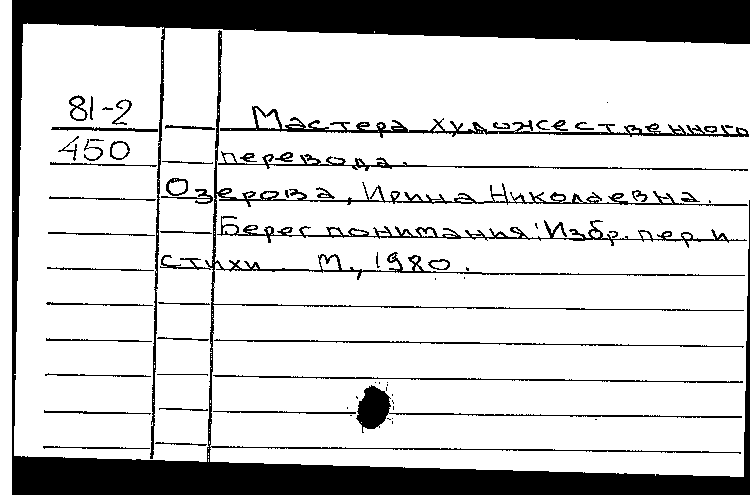 81-2 Мастера художественного
450 перевода.
Озерова, Ирина Николаевна.
Берег понимания: Избр. пер. и
стихи. М., 1980.